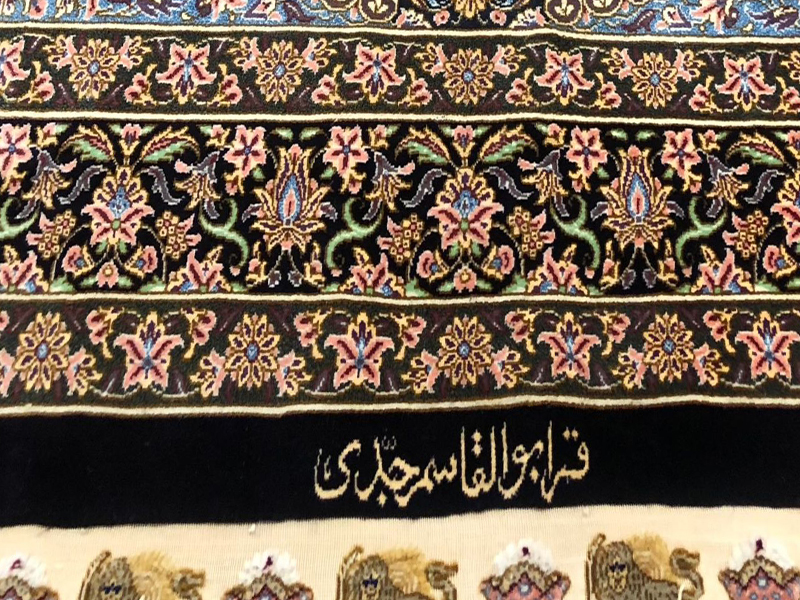 قم ابوالقاسم جدّی